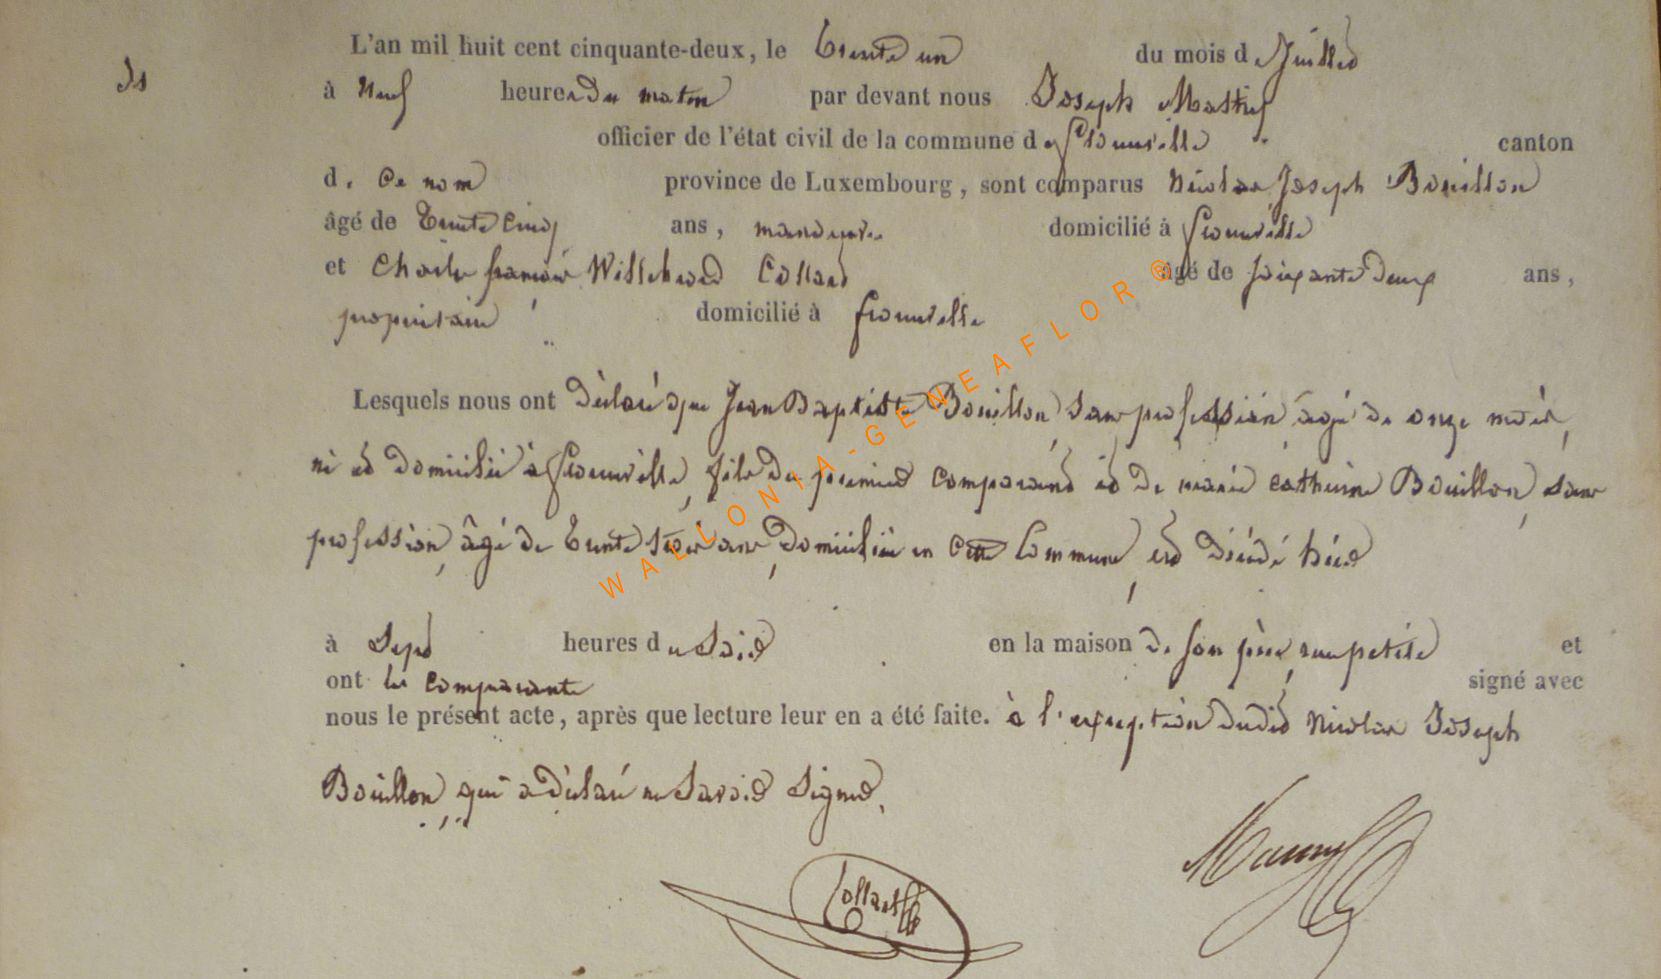 L'an mil huit cent cinquante-deux, le trente un du mois de Juillet
à neuf heures du matin par devant nous Joseph
officier de l'état civil de la commune de florenville canton
de ce nom province de Luxembourg, sont comparus Nicolas Joseph Bouillon
âgé de trente cinq ans, manœuvre domicilié à florenville
et Charles françois Willebrord Collard âgé de soixante deux ans,
propriétaire domicilié à florenville
Lesquels nous ont déclaré que Jean Baptiste Bouillon sans profession âgé de onze mois,
né et domicilié à florenville, fils du premier comparant et de marie catherine Bouillon, sans
profession, âgé de trente trois ans, domiciliée en cette Commune, est décédé hier
à Sept heures du Soir en la maison de son père, rue petite et
ont les comparants signé avec
nous le présent acte, après que lecture leur en a été faite. à l'exception dudit Nicolas Joseph
Bouillon, qui a déclaré ne Savoir Signer.
Collard
WALLONIA-GENEAFLOR®